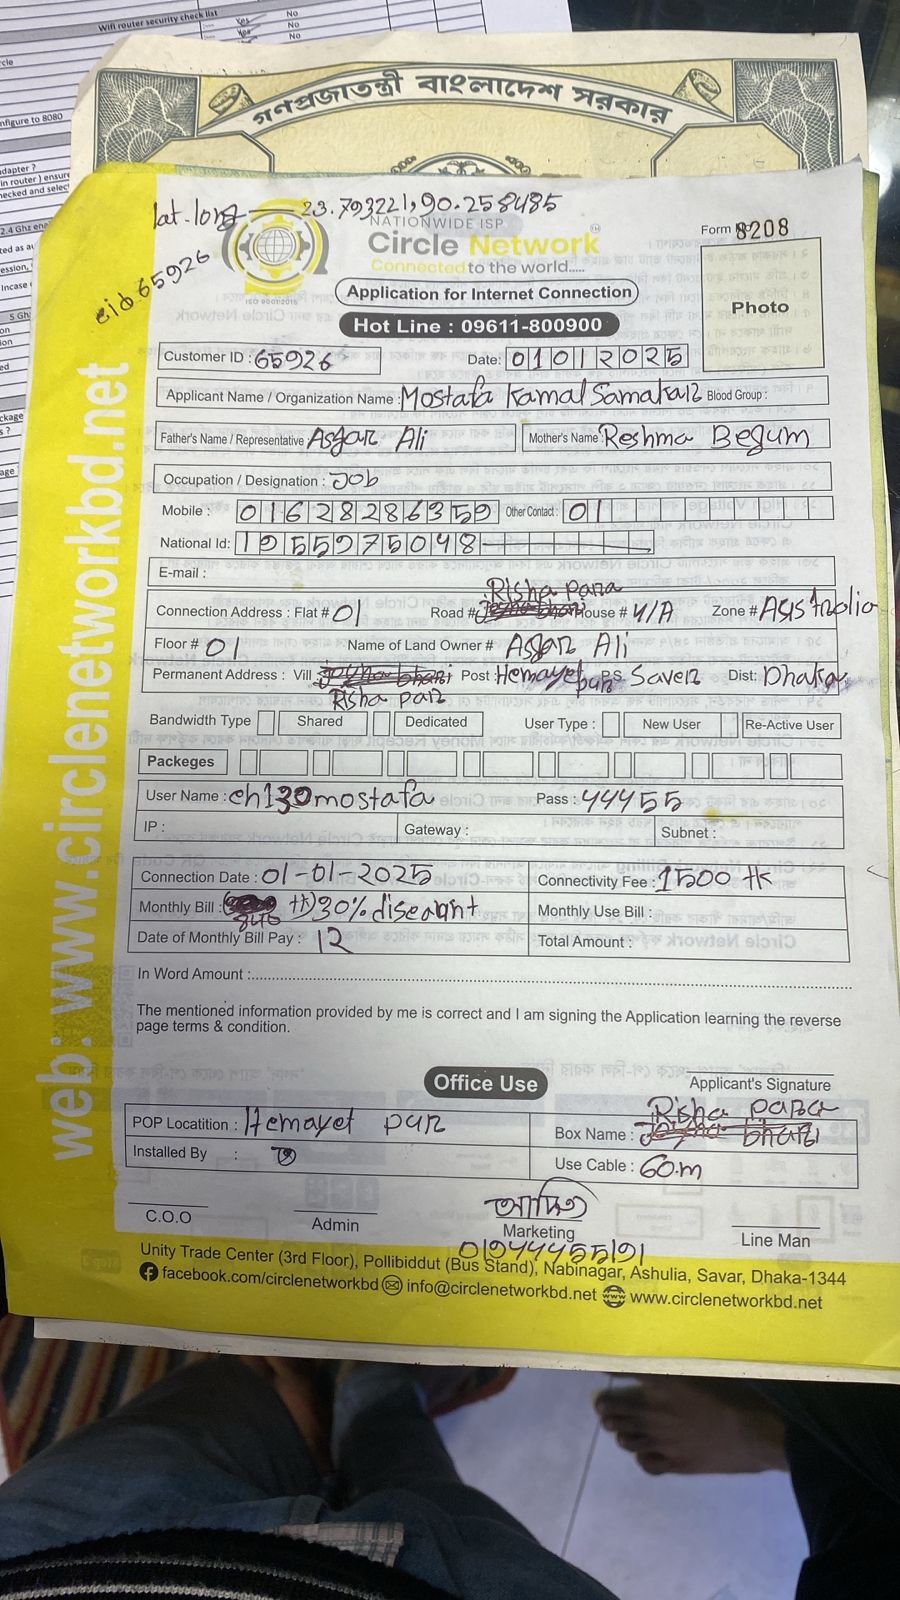 Wifi router security check list
No
Yes No
Yes No
nfigure to 8080
adapter ?
in router ) ensure
hecked and selec
2.4 Ghz
গণপ্রজাতন্ত্রী বাংলাদেশ সরকার
lat-long — 23.793221,90.258485
cid 65926
NATIONWIDE ISP
Circle Network
Connected to the world.....
ISO 9001:2015
Form 8208
Application for Internet Connection
Photo
Hot Line : 09611-800900
Customer ID : 65926 Date: 01012025
Applicant Name / Organization Name : Mostafa Kamal Samakar Blood Group :
Father's Name / Representative Asgar Ali Mother's Name : Reshma Begum
Occupation / Designation : Job
Mobile : 01628286359 Other Contact : 01
National Id: 1955975048
E-mail :
Risha para
Connection Address : Flat # 01 Road # House # 4/A Zone # Asistralia
Floor # 01 Name of Land Owner # Asgar Ali
Permanent Address : Vill Post Hemayetpur P.S Saver Dist: Dhaka
Risha par
Bandwidth Type Shared Dedicated User Type : New User Re-Active User
Packeges
User Name : ch130mostafa Pass : 44455
IP : Gateway : Subnet :
Connection Date : 01-01-2025 Connectivity Fee : 1500 tk
Monthly Bill : tk) 30% diseaunt Monthly Use Bill :
840
Date of Monthly Bill Pay : 12 Total Amount :
In Word Amount :
The mentioned information provided by me is correct and I am signing the Application learning the reverse
page terms & condition.
Office Use
Applicant's Signature
POP Locatition : Hemayet pur
Risha para
Box Name :
Installed By :
Use Cable : 60.m
C.O.O
Admin
Marketing
01944455191
Line Man
Unity Trade Center (3rd Floor), Pollibiddut (Bus Stand), Nabinagar, Ashulia, Savar, Dhaka-1344
facebook.com/circlenetworkbd info@circlenetworkbd.net www.circlenetworkbd.net
web: www.circlenetworkbd.net